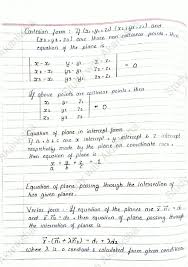 Cartesian form : If (x₁, y₁, z₁) (x₂, y₂, z₂) and
(x₃, y₃, z₃) are three non collinear points, then
equation of the plane is
| x - x₁  y - y₁  z - z₁ |
| x₂ - x₁  y₂ - y₁  z₂ - z₁ | = 0
| x₃ - x₁  y₃ - y₁  z₃ - z₁ |
If above points are collinear points then
| x₁  y₁  z₁ |
| x₂  y₂  z₂ | = 0
| x₃  y₃  z₃ |
Equation of plane in intercept form
x intercept y - intercept & z - intercept
respectively made by the plane on coordinate axes,
then equation is
x/a + y/b + z/c = 1
Equation of plane passing through the intersection of
two given planes.
Vector form :- If equation of the planes are
and then equation of plane passing through
the intersection is
r̄ · (n̄₁ + λn̄₂) = d₁ + λd₂
where λ is a constant & calculated from given condition